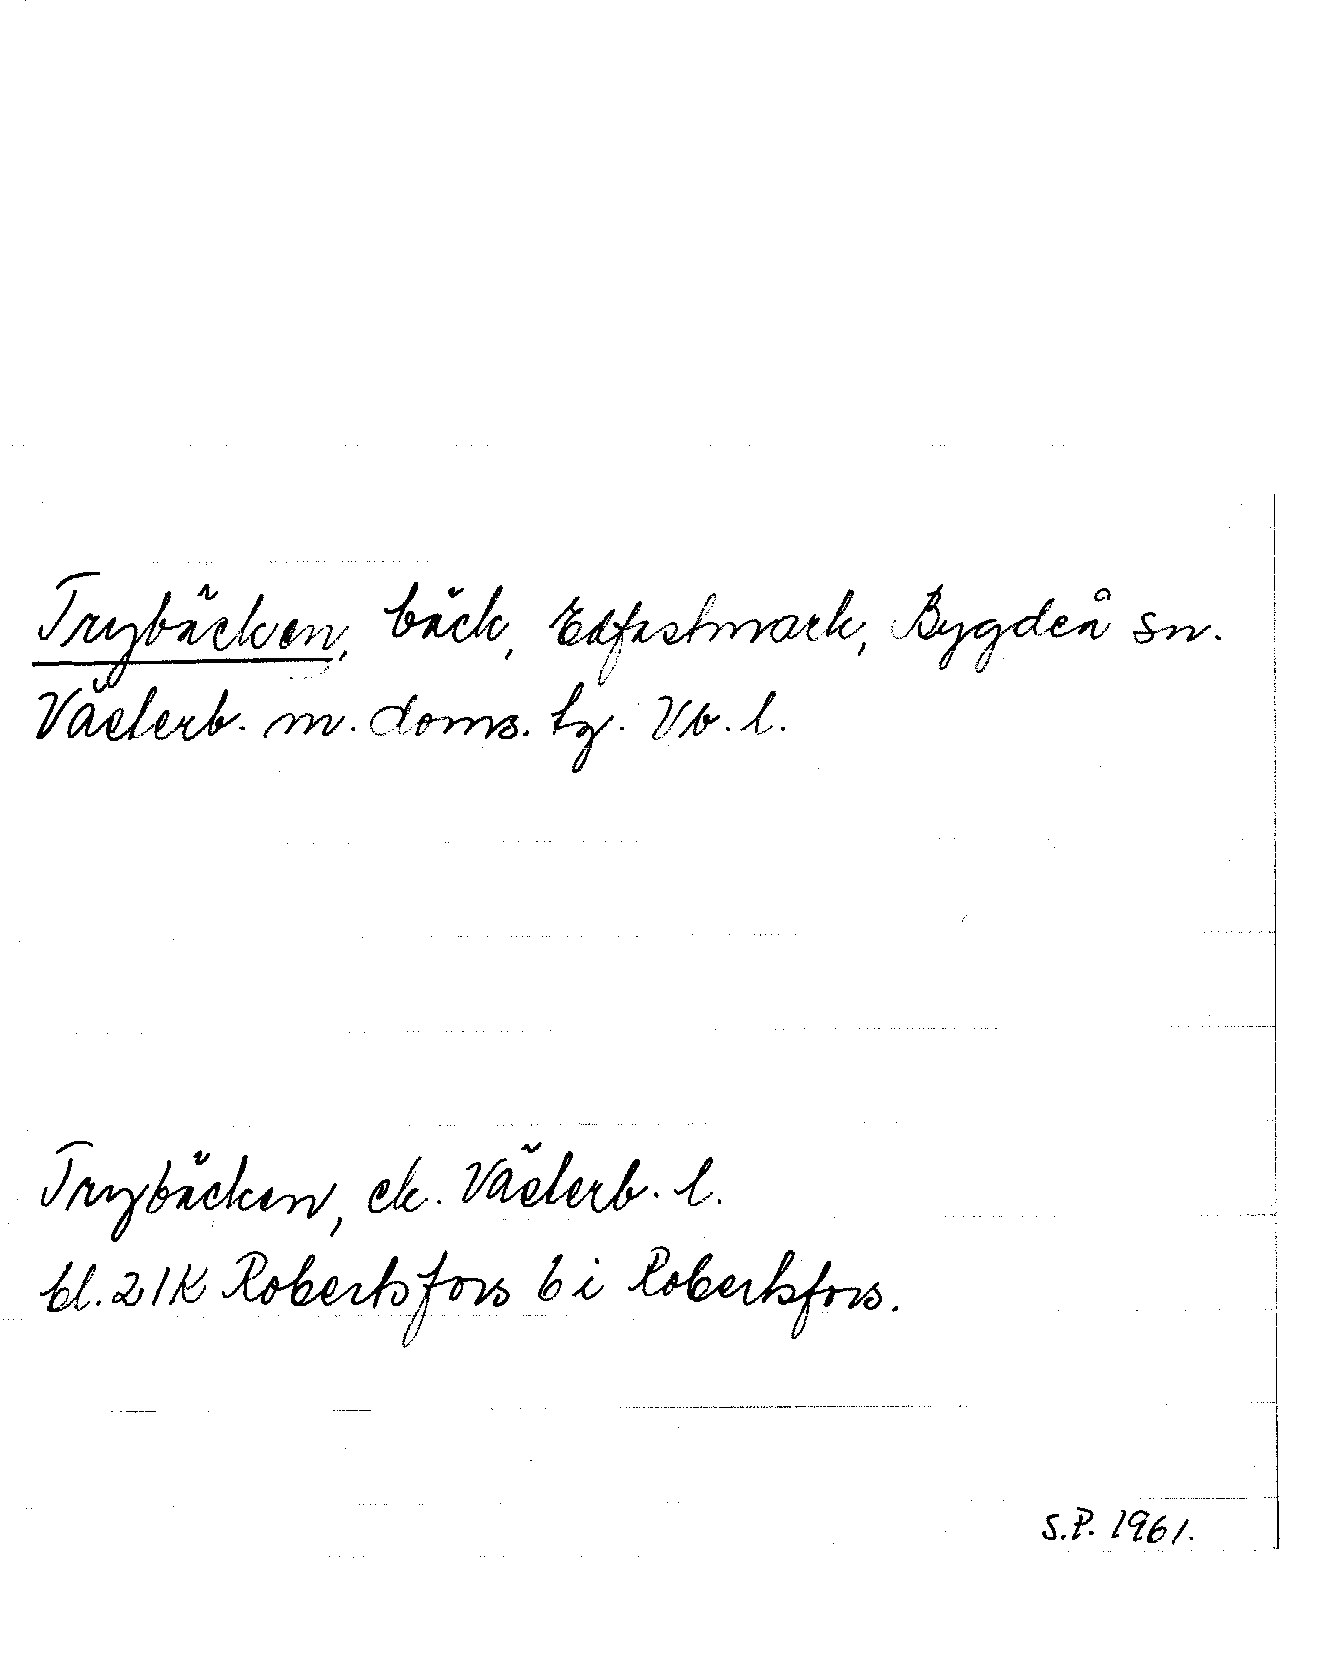 Trybäcken, bäck, Edfastmark, Bygdeå sn.
Västerb. m. doms. tg. Vb. l.
Trybäcken, ek. Västerb. l.
bl. 21K Robertsfors b i Robertsfors.
S.P. 1961.